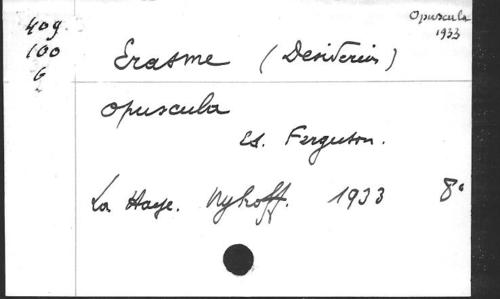 Opuscula
1933
409
100
G
Erasme (Desiderius)
Opuscula
Ed. Ferguson.
La Haye. Nyhoff. 1933 8°